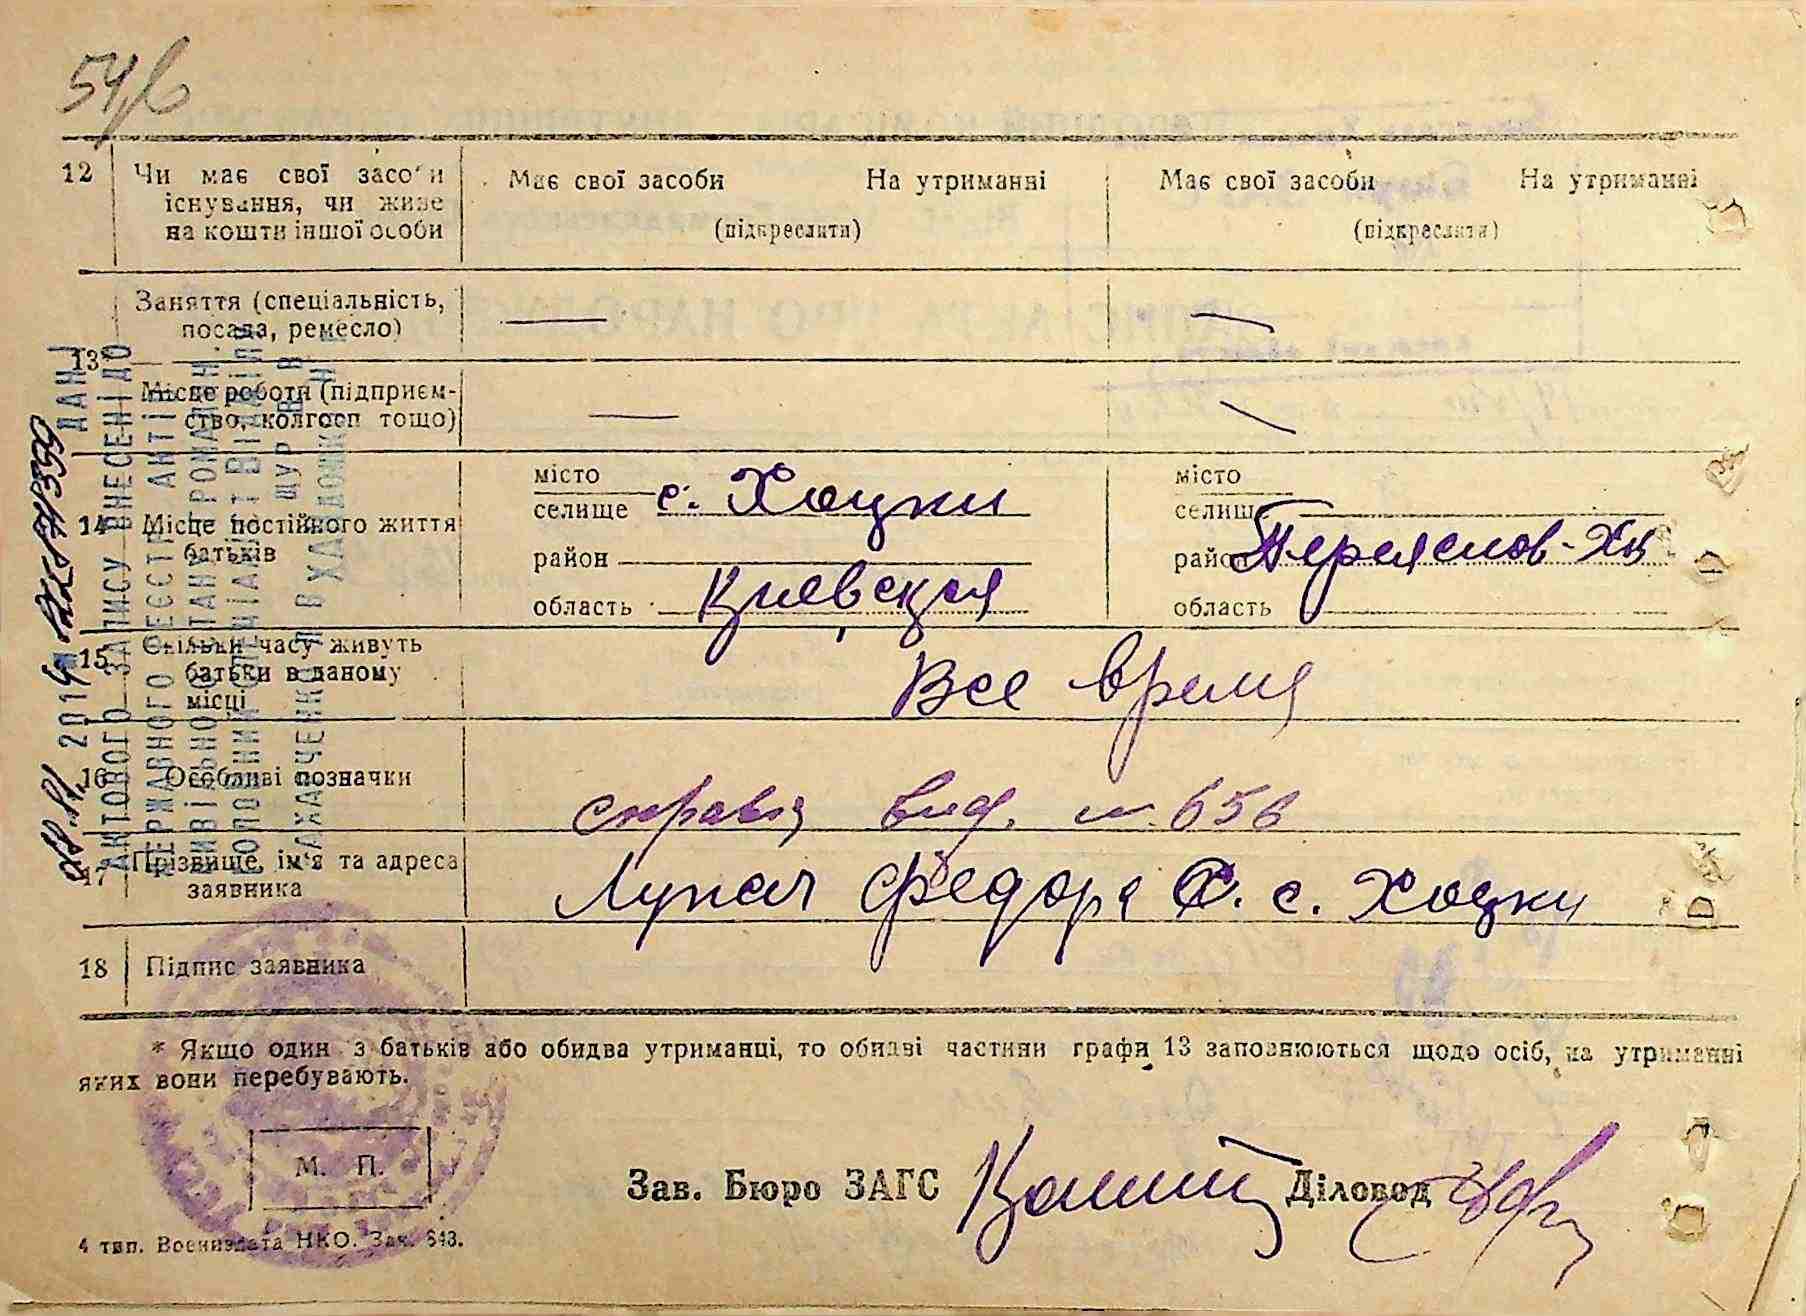 54/б
12 Чи має свої засоби Має свої засоби На утриманні Має свої засоби На утриманні
існування, чи живе
на кошти іншої особи (підкреслити) (підкреслити)
Заняття (спеціальність, — —
посада, ремесло)
13
Місце роботи (підприєм- — —
ство, колгосп тощо)
місто місто
селище с. Хоцки селище
14 Місце постійного життя
батьків
район район Переяслов-Хц
область Киевская область
15 Скільки часу живуть
батьки в даному Все время
місці
16 Особливі позначки справа вид. 656
17 Прізвище, ім'я та адреса Лупач Федора Х. с. Хоцки
заявника
18 Підпис заявника
* Якщо один з батьків або обидва утриманці, то обидві частини графи 13 заповнюються щодо осіб, на утриманні
яких вони перебувають.
М. П.
Зав. Бюро ЗАГС Діловод
4 тип. Воениздата НКО. Зак. 643.
ДАНІ
АКТОВОГО ЗАПИСУ ВНЕСЕНІ ДО
ДЕРЖАВНОГО РЕЄСТР АКТІВ
ЦИВІЛЬНОГО СТАНУ ГРОМАДЯН.
ГОЛОВНИЙ СПЕЦІАЛІСТ ВІДДІЛУ